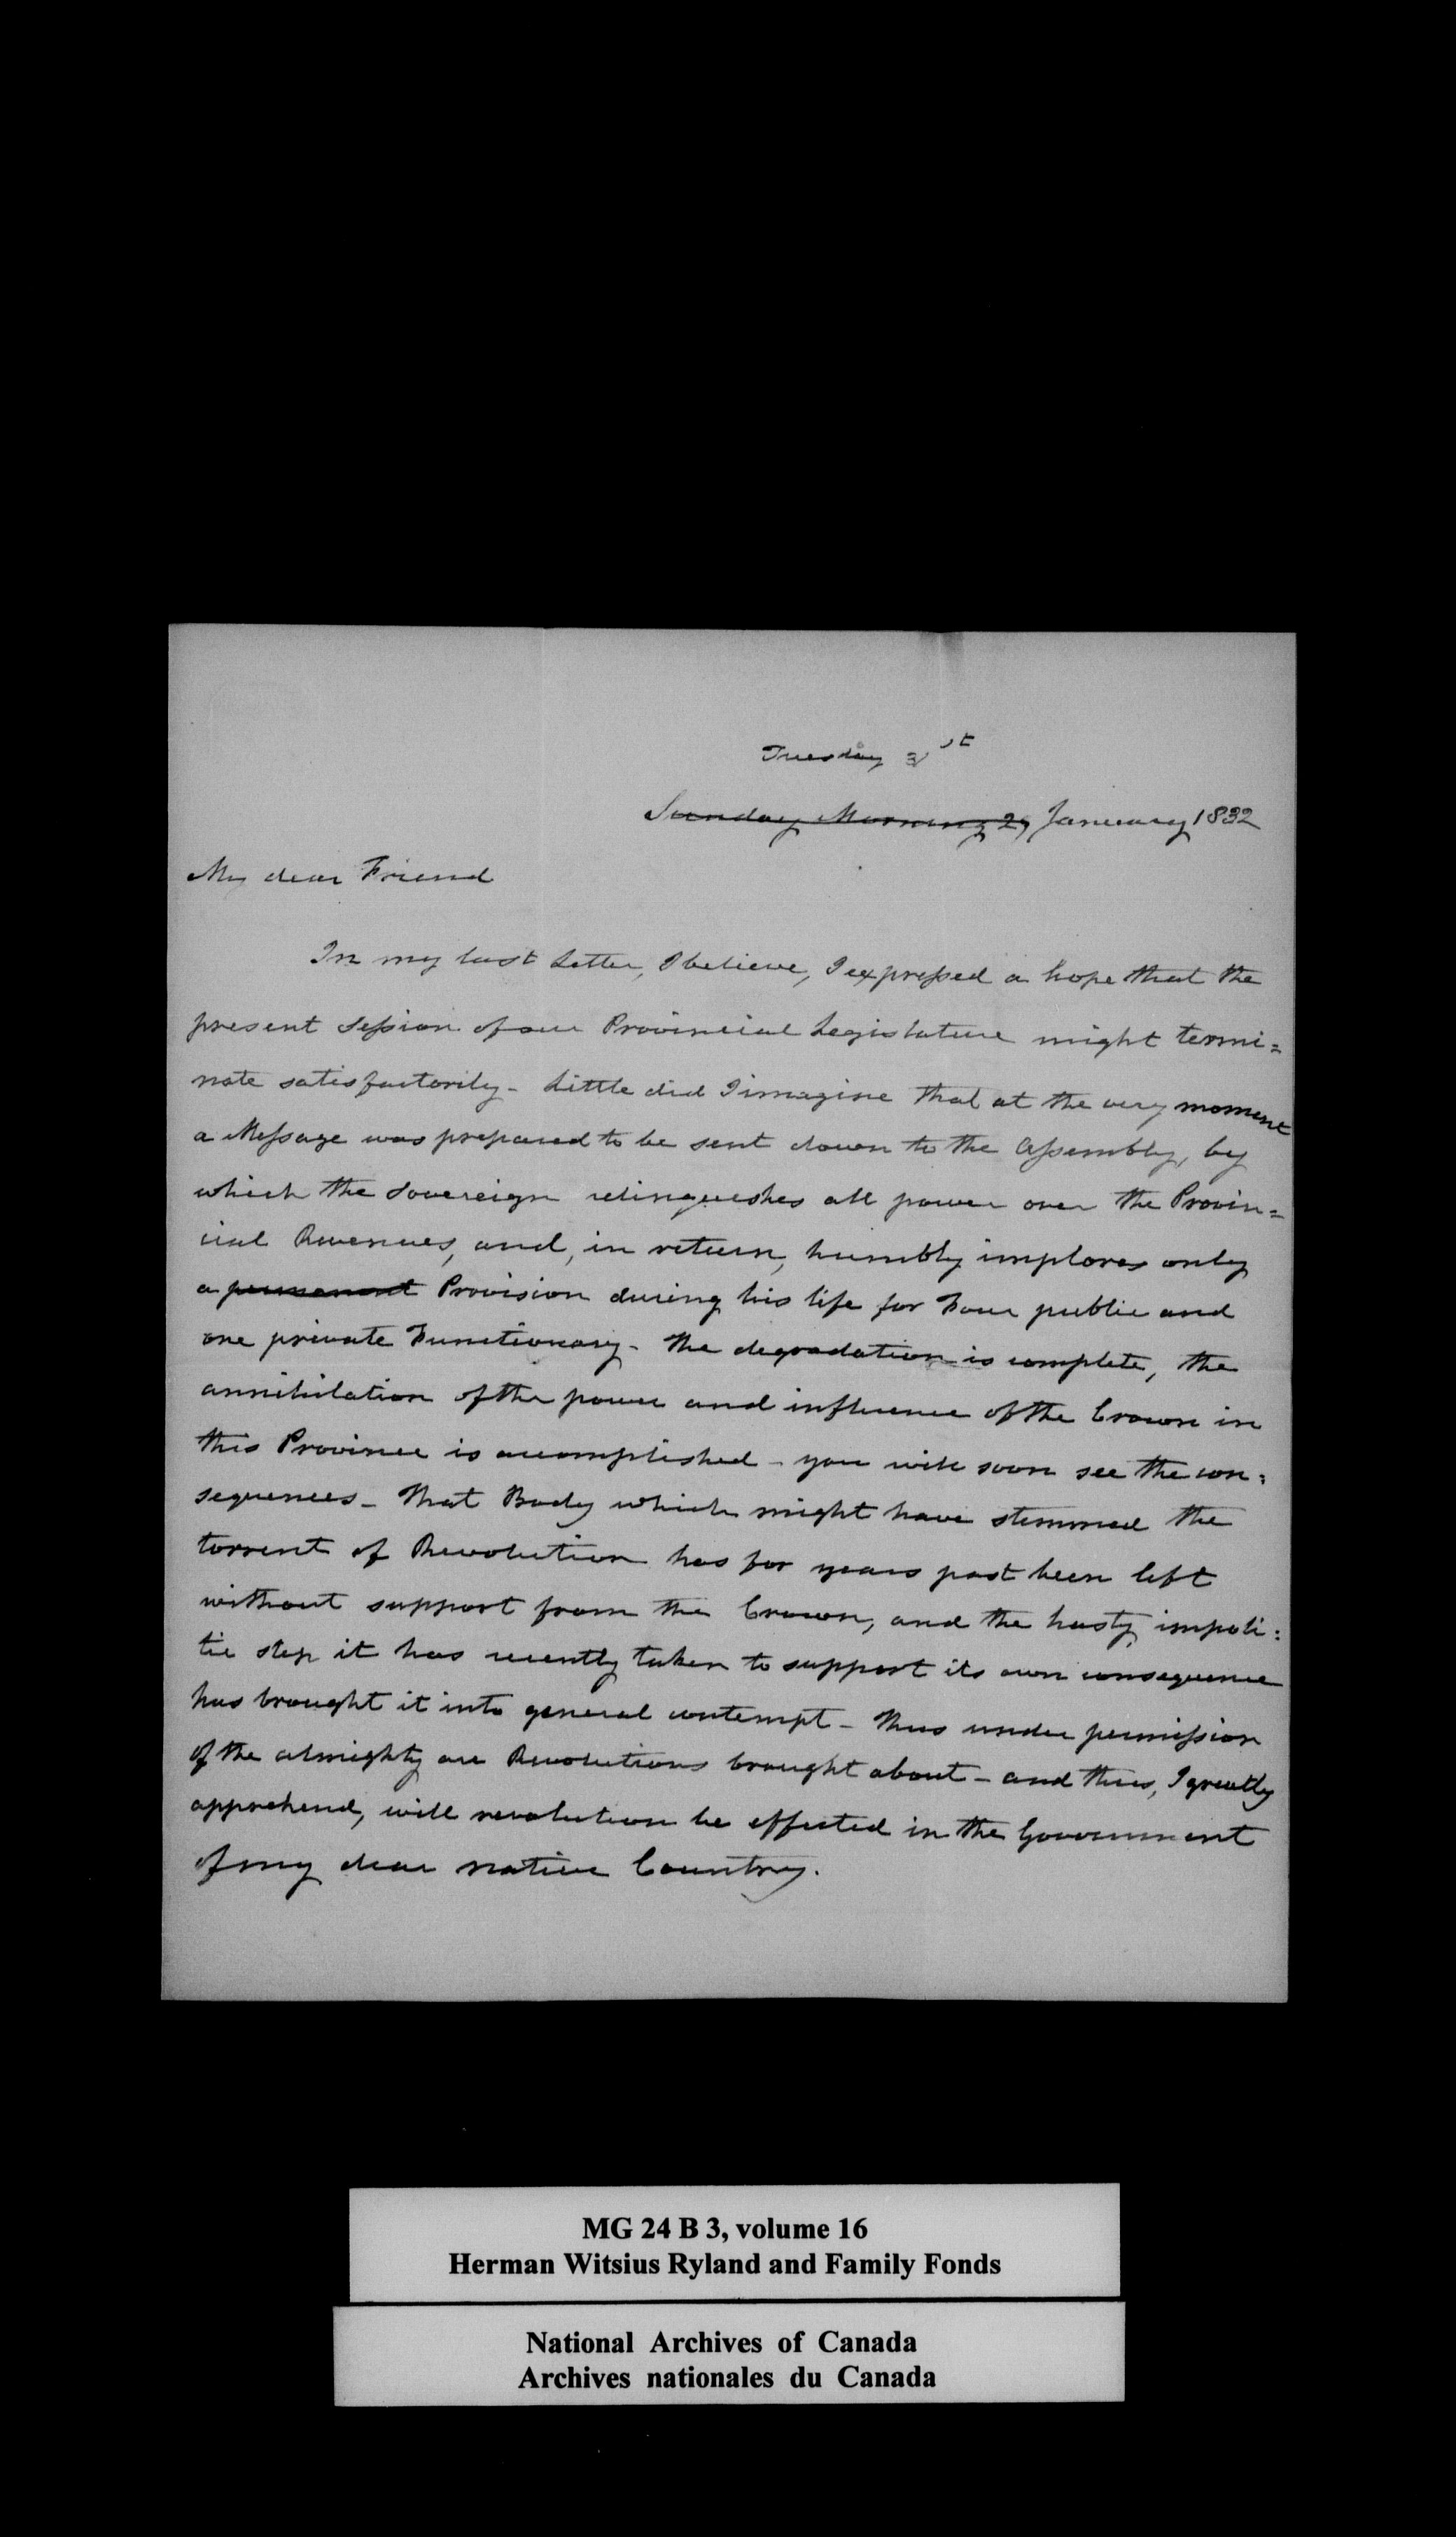 Tuesday 31st
Sunday Morning 29 January 1832
My dear Friend
In my last Letter, I believe, I expressed a hope that the
present Session of our Provincial Legislature might termi=
nate satisfactorily - Little did I imagine that at the very moment
a Message was prepared to be sent down to the Assembly, by
which the Sovereign relinquishes all power over the Provin=
cial Revenues, and, in return, humbly implores only
a permanent Provision during his life for Four public and
one private Functionary - The degradation is complete, the
annihilation of the power and influence of the Crown in
this Province is accomplished - you will soon see the con:
sequences - That Body which might have stemmed the
torrent of Revolution has for years past been left
without support from the Crown, and the hasty, impoli:
tic step it has recently taken to support its own consequence
has brought it into general contempt - Thus under permission
of the almighty are Revolutions brought about - and thus, I greatly
apprehend, will revolution be effected in the Government
of my dear native Country.
MG 24 B 3, volume 16
Herman Witsius Ryland and Family Fonds
National Archives of Canada
Archives nationales du Canada